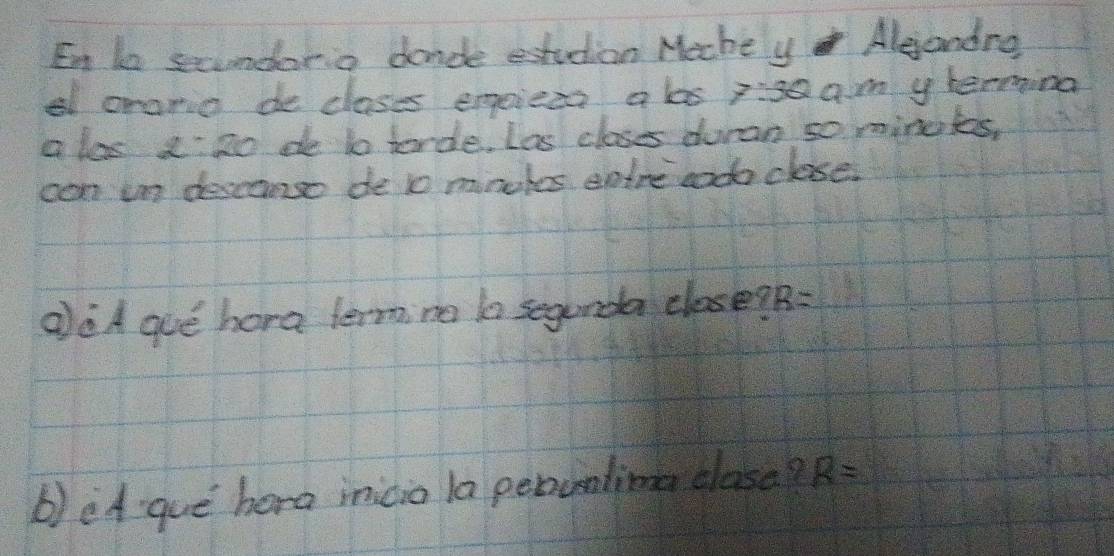 En la secundaria donde estudian Meche y Alejandra
el orario de clases empieza a las 7:30 am y termina
a las 2:20 de la tarde. Las clases duran 50 minutos,
con un descanso de 10 minutos entre cada clase.
a) ¿A qué hora termina la segunda clase? R=
b) ¿A qué hora inicia la penúnltima clase? R=